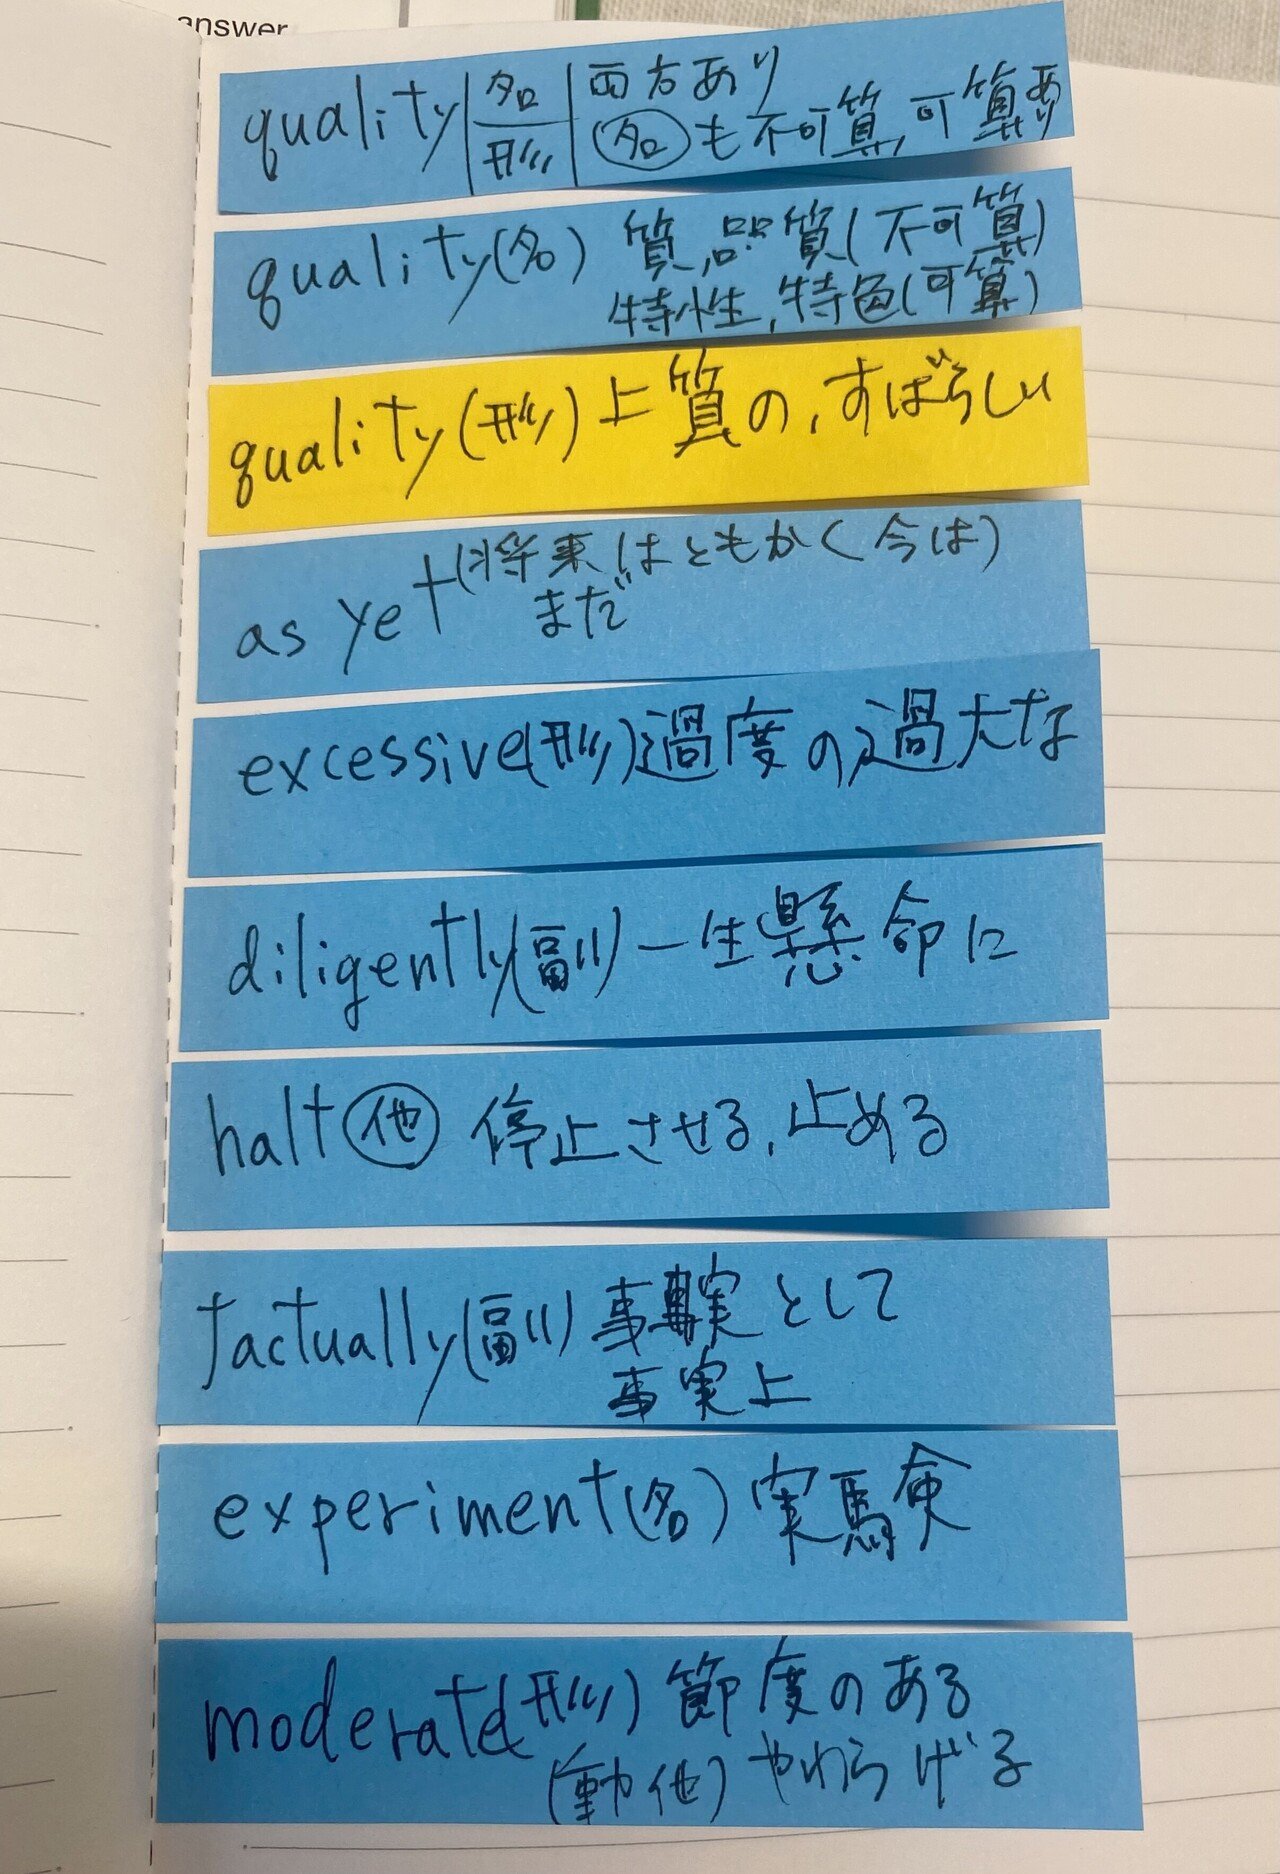 answer
quality 名 形 両方あり
名も不可算,可算あり
quality(名) 質,品質(不可算)
特性,特色(可算)
quality(形)上質の,すばらしい
as yet(将来はともかく今は)
まだ
excessive(形)過度の,過大な
diligently(副)一生懸命に
halt 他 停止させる,止める
factually(副)事実として
事実上
experiment(名)実験
moderate(形)節度のある
(動他)やわらげる